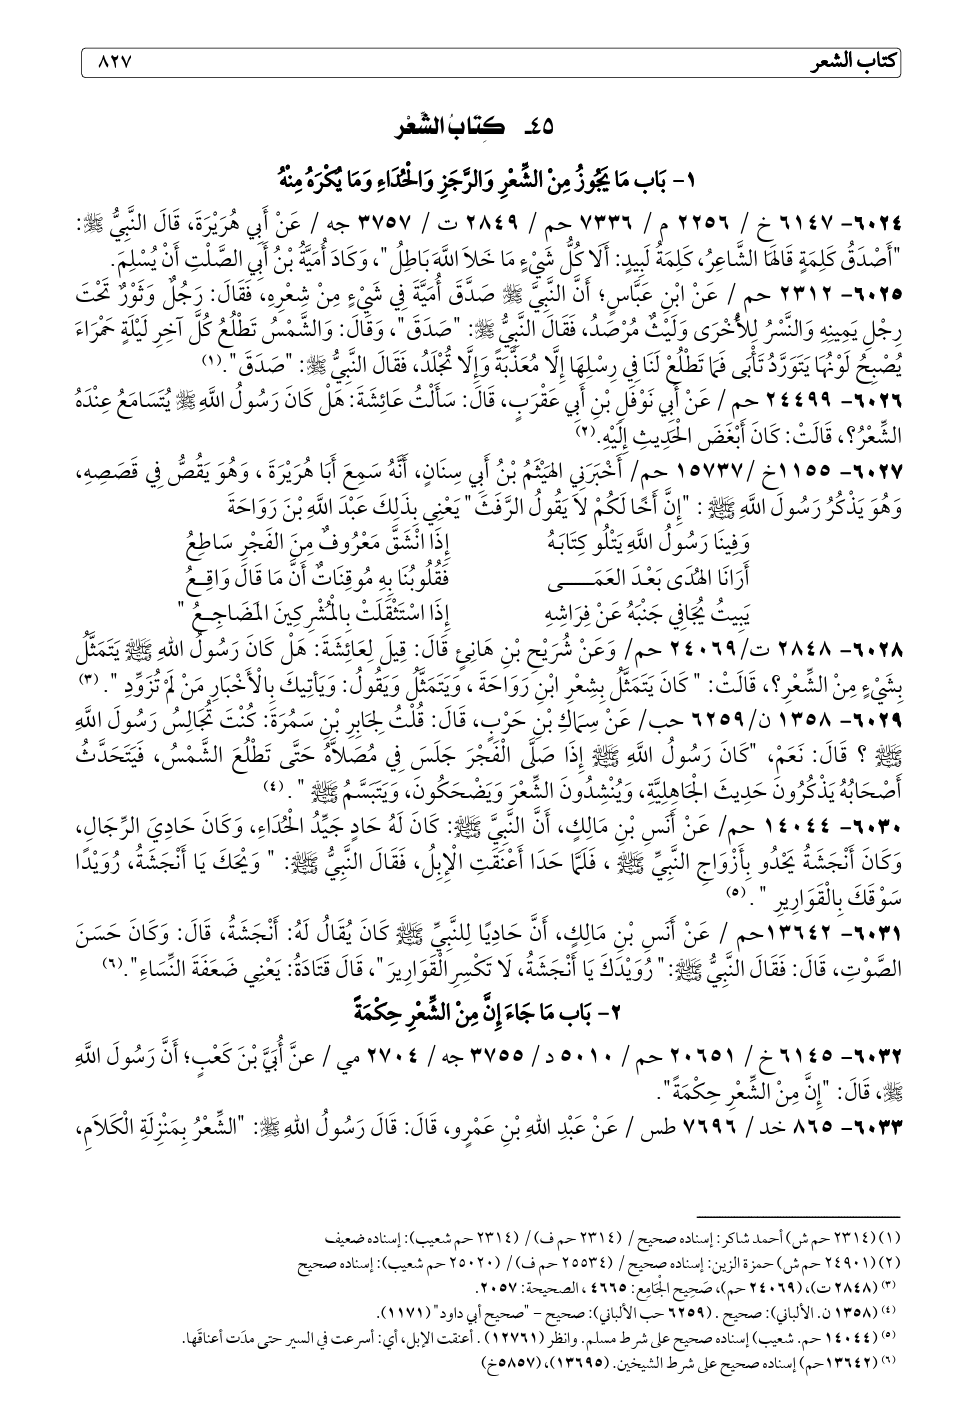 كتاب الشعر ٨٢٧
٤٥ـ كِتَابُ الشِّعْرِ
١- بَاب مَا يَجُوزُ مِنْ الشِّعْرِ وَالرَّجَزِ وَالْحُدَاءِ وَمَا يُكْرَهُ مِنْهُ
٦٠٢٤- ٦١٤٧ خ / ٢٢٥٦ م / ٧٣٣٦ حم / ٢٨٤٩ ت / ٣٧٥٧ جه / عَنْ أَبِي هُرَيْرَةَ، قَالَ النَّبِيُّ ﷺ:
"أَصْدَقُ كَلِمَةٍ قَالَهَا الشَّاعِرُ، كَلِمَةُ لَبِيدٍ: أَلَا كُلُّ شَيْءٍ مَا خَلاَ اللَّهَ بَاطِلُ"، وَكَادَ أُمَيَّةُ بْنُ أَبِي الصَّلْتِ أَنْ يُسْلِمَ.
٦٠٢٥- ٢٣١٢ حم / عَنْ ابْنِ عَبَّاسٍ؛ أَنَّ النَّبِيَّ ﷺ صَدَّقَ أُمَيَّةَ فِي شَيْءٍ مِنْ شِعْرِهِ، فَقَالَ: رَجُلٌ وَثَوْرٌ تَحْتَ
رِجْلِ يَمِينِهِ وَالنَّسْرُ لِلأُخْرَى وَلَيْثٌ مُرْصَدُ، فَقَالَ النَّبِيُّ ﷺ: "صَدَقَ"، وَقَالَ: وَالشَّمْسُ تَطْلُعُ كُلَّ آخِرِ لَيْلَةٍ حَمْرَاءَ
يُصْبِحُ لَوْنُهَا يَتَوَرَّدُ تَأْبَى فَمَا تَطْلُعُ لَنَا فِي رِسْلِهَا إِلَّا مُعَذَّبَةً وَإِلَّا تُجْلَدُ، فَقَالَ النَّبِيُّ ﷺ: "صَدَقَ".(١)
٦٠٢٦- ٢٤٤٩٩ حم / عَنْ أَبِي نَوْفَلِ بْنِ أَبِي عَقْرَبٍ، قَالَ: سَأَلْتُ عَائِشَةَ: هَلْ كَانَ رَسُولُ اللَّهِ ﷺ يُتَسَامَعُ عِنْدَهُ
الشِّعْرُ؟، قَالَتْ: كَانَ أَبْغَضَ الْحَدِيثِ إِلَيْهِ.(٢)
٦٠٢٧- ١١٥٥خ /١٥٧٣٧ حم/ أَخْبَرَنِي الهَيْثَمُ بْنُ أَبِي سِنَانٍ، أَنَّهُ سَمِعَ أَبَا هُرَيْرَةَ ، وَهُوَ يَقُصُّ فِي قَصَصِهِ،
وَهُوَ يَذْكُرُ رَسُولَ اللَّهِ ﷺ : "إِنَّ أَخًا لَكُمْ لاَ يَقُولُ الرَّفَثَ" يَعْنِي بِذَلِكَ عَبْدَ اللَّهِ بْنَ رَوَاحَةَ
وَفِينَا رَسُولُ اللَّهِ يَتْلُو كِتَابَهُ إِذَا انْشَقَّ مَعْرُوفٌ مِنَ الفَجْرِ سَاطِعُ
أَرَانَا الهُدَى بَعْدَ العَمَـــى فَقُلُوبُنَا بِهِ مُوقِنَاتٌ أَنَّ مَا قَالَ وَاقِـعُ
يَبِيتُ يُجَافِي جَنْبَهُ عَنْ فِرَاشِهِ إِذَا اسْتَثْقَلَتْ بِالْمُشْرِكِينَ المَضَاجِـعُ "
٦٠٢٨- ٢٨٤٨ ت/٢٤٠٦٩ حم/ وَعَنْ شُرَيْحِ بْنِ هَانِئٍ قَالَ: قِيلَ لِعَائِشَةَ: هَلْ كَانَ رَسُولُ اللهِ ﷺ يَتَمَثَّلُ
بِشَيْءٍ مِنْ الشِّعْرِ؟، قَالَتْ: " كَانَ يَتَمَثَّلُ بِشِعْرِ ابْنِ رَوَاحَةَ ، وَيَتَمَثَّلُ وَيَقُولُ: وَيَأْتِيكَ بِالْأَخْبَارِ مَنْ لَمْ تُزَوِّدِ ". (٣)
٦٠٢٩- ١٣٥٨ ن/٦٢٥٩ حب/ عَنْ سِمَاكِ بْنِ حَرْبٍ، قَالَ: قُلْتُ لِجَابِرِ بْنِ سَمُرَةَ: كُنْتَ تُجَالِسُ رَسُولَ اللَّهِ
ﷺ ؟ قَالَ: نَعَمْ، "كَانَ رَسُولُ اللَّهِ ﷺ إِذَا صَلَّى الْفَجْرَ جَلَسَ فِي مُصَلاَّهُ حَتَّى تَطْلُعَ الشَّمْسُ، فَيَتَحَدَّثُ
أَصْحَابُهُ يَذْكُرُونَ حَدِيثَ الْجَاهِلِيَّةِ، وَيُنْشِدُونَ الشِّعْرَ وَيَضْحَكُونَ، وَيَتَبَسَّمُ ﷺ " . (٤)
٦٠٣٠- ١٤٠٤٤ حم/ عَنْ أَنَسِ بْنِ مَالِكٍ، أَنَّ النَّبِيَّ ﷺ: كَانَ لَهُ حَادٍ جَيِّدُ الْحُدَاءِ، وَكَانَ حَادِيَ الرِّجَالِ،
وَكَانَ أَنْجَشَةُ يَحْدُو بِأَزْوَاجِ النَّبِيِّ ﷺ ، فَلَمَّا حَدَا أَعْنَقَتِ الْإِبِلُ، فَقَالَ النَّبِيُّ ﷺ: " وَيْحَكَ يَا أَنْجَشَةُ، رُوَيْدًا
سَوْقَكَ بِالْقَوَارِيرِ " . (٥)
٦٠٣١- ١٣٦٤٢حم / عَنْ أَنَسِ بْنِ مَالِكٍ، أَنَّ حَادِيًا لِلنَّبِيِّ ﷺ كَانَ يُقَالُ لَهُ: أَنْجَشَةُ، قَالَ: وَكَانَ حَسَنَ
الصَّوْتِ، قَالَ: فَقَالَ النَّبِيُّ ﷺ: "رُوَيْدَكَ يَا أَنْجَشَةُ، لَا تَكْسِرِ الْقَوَارِيرَ"، قَالَ قَتَادَةُ: يَعْنِي ضَعَفَةَ النِّسَاءِ".(٦)
٢- بَاب مَا جَاءَ إِنَّ مِنْ الشِّعْرِ حِكْمَةً
٦٠٣٢- ٦١٤٥ خ / ٢٠٦٥١ حم / ٥٠١٠ د / ٣٧٥٥ جه / ٢٧٠٤ مي / عنَّ أُبَيَّ بْنَ كَعْبٍ؛ أَنَّ رَسُولَ اللَّهِ
ﷺ، قَالَ: "إِنَّ مِنْ الشِّعْرِ حِكْمَةً".
٦٠٣٣- ٨٦٥ خد / ٧٦٩٦ طس / عَنْ عَبْدِ اللهِ بْنِ عَمْرٍو، قَالَ: قَالَ رَسُولُ اللهِ ﷺ: "الشِّعْرُ بِمَنْزِلَةِ الْكَلَامِ،
(١) (٢٣١٤ حم ش) أحمد شاكر: إسناده صحيح / (٢٣١٤ حم ف)/ (٢٣١٤ حم شعيب): إسناده ضعيف
(٢) (٢٤٩٠١ حم ش) حمزة الزين: إسناده صحيح / (٢٥٥٣٤ حم ف)/ (٢٥٠٢٠ حم شعيب): إسناده صحيح
(٣) (٢٨٤٨ ت)، (٢٤٠٦٩ حم)، صَحِيح الْجَامِع: ٤٦٦٥ ، الصحيحة: ٢٠٥٧.
(٤) (١٣٥٨ ن. الألباني): صحيح . (٦٢٥٩ حب الألباني): صحيح – "صحيح أبي داود" (١١٧١).
(٥) (١٤٠٤٤ حم. شعيب) إسناده صحيح على شرط مسلم. وانظر (١٢٧٦١) . أعنقت الإبل، أي: أسرعت في السير حتى مدّت أعناقَها.
(٦) (١٣٦٤٢حم) إسناده صحيح على شرط الشيخين. (١٣٦٩٥)، (٥٨٥٧خ)